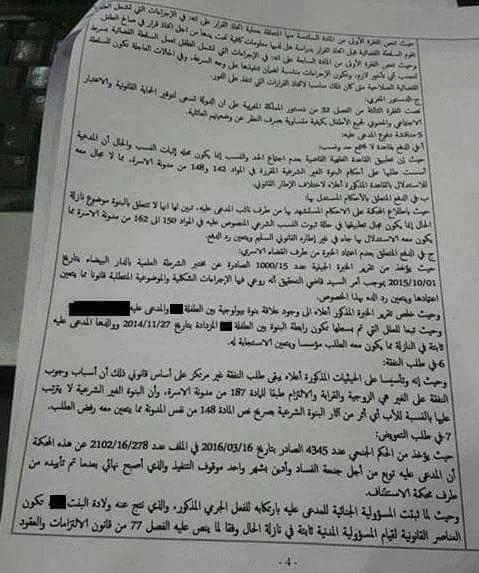 حيث تنص الفقرة الأولى من المادة السادسة منها المتعلقة بعملية اتخاذ القرار على أنه: في الإجراءات التي تشمل الطفل
تقوم السلطة القضائية قبل اتخاذ القرار بدراسة هل لديها معلومات كافية تمكنها من أجل اتخاذ قرار في صالح الطفل
وحيث تنص الفقرة الأولى من المادة السابعة على أنه: في الإجراءات التي تشمل الطفل تعمل السلطة القضائية بسرعة
لتجنب أي تأخير لازم، وتكون الإجراءات مناسبة لضمان تنفيذها على وجه السرعة، وفي الحالات العاجلة تكون للسلطة
القضائية الصلاحية متى كان ذلك مناسبا لاتخاذ القرارات التي تنفذ على الفور.
ج-الدستور المغربي:
نصت الفقرة الثالثة من الفصل 32 من دستور المملكة المغربية على أن الدولة تسعى لتوفير الحماية القانونية والاعتبار
الاجتماعي والمعنوي لجميع الأطفال بكيفية متساوية بصرف النظر عن وضعيتهم العائلية.
5-مناقشة دفوع المدعى عليه:
أ-في الدفع بقاعدة لا يجتمع حد ونسب:
حيث إن تطبيق القاعدة الفقهية القاضية بعدم اجتماع الحد والنسب إنما يكون محله إثبات النسب والحال أن المدعية
أسست طلبها على أحكام البنوة الغير الشرعية المقررة في المواد 142 و148 من مدونة الأسرة، مما لا مجال معه
للاستدلال بالقاعدة المذكورة أعلاه لاختلاف الإطار القانوني.
ب في الدفع المتعلق بالأحكام المستدل بها:
حيث باطلاع المحكمة على الأحكام المستشهد بها من طرف نائب المدعى عليه، تبين لها انها لا تتعلق بالبنوة موضوع نازلة
الحال إنما يكون مجال تطبيقها في حالة ثبوت النسب الشرعي المنصوص عليه في المواد 150 الى 162 من مدونة الاسرة مما
يكون معه الاستدلال بها جاء في غير إطاره القانوني السليم ويتعين رد الدفع.
ج في الدفع المتعلق بعدم اعتماد الخبرة من طرف القضاء الاسري:
حيث يؤخذ من تقرير الخبرة الجينية عدد 1000/15 الصادرة عن مختبر الشرطة العلمية بالدار البيضاء بتاريخ
2015/10/01 بموجب أمر السيد قاضي التحقيق أنه روعي فيها الإجراءات الشكلية والموضوعية المتطلبة قانونا مما يتعين
اعتمادها ويتعين رد الدفع بهذا الخصوص.
وحيث خلص تقرير الخبرة المذكور أعلاه الى وجود علاقة بنوة بيولوجية بين الطفلة والمدعى عليه
وحيث تبعا للعلل التي تم بسطها تكون رابطة البنوة بين الطفلة المزدادة بتاريخ 2014/11/27 ووالدها المدعى عليه
ثابتة في النازلة مما يكون معه الطلب مؤسسا ويتعين الاستجابة له.
6-في طلب النفقة:
وحيث إنه وتأسيسا على الحيثيات المذكورة أعلاه يبقى طلب النفقة غير مرتكز على أساس قانوني ذلك أن أسباب وجوب
النفقة على الغير هي الزوجية والقرابة والالتزام طبقا للمادة 187 من مدونة الاسرة، وأن البنوة الغير الشرعية لا يترتب
عليها بالنسبة للأب أي أثر من آثار البنوة الشرعية بصريح نص المادة 148 من نفس المدونة مما يتعين معه رفض الطلب.
7-في طلب التعويض:
حيث يؤخذ من الحكم الجنحي عدد 4345 الصادر بتاريخ 2016/03/16 في الملف عدد 2102/16/278 عن هذه المحكمة
أن المدعى عليه توبع من أجل جنحة الفساد وأدين بشهر واحد موقوف التنفيذ والذي أصبح نهائي بعدما تم تأييده من
طرف محكمة الاستئناف.
وحيث لما ثبتت المسؤولية الجنائية للمدعى عليه بارتكابه للفصل الجرمي المذكور، والذي نتج عنه ولادة البنت تكون
العناصر القانونية لقيام المسؤولية المدنية ثابتة في نازلة الحال وفقا لما ينص عليه الفصل 77 من قانون الالتزامات والعقود
- 4 -